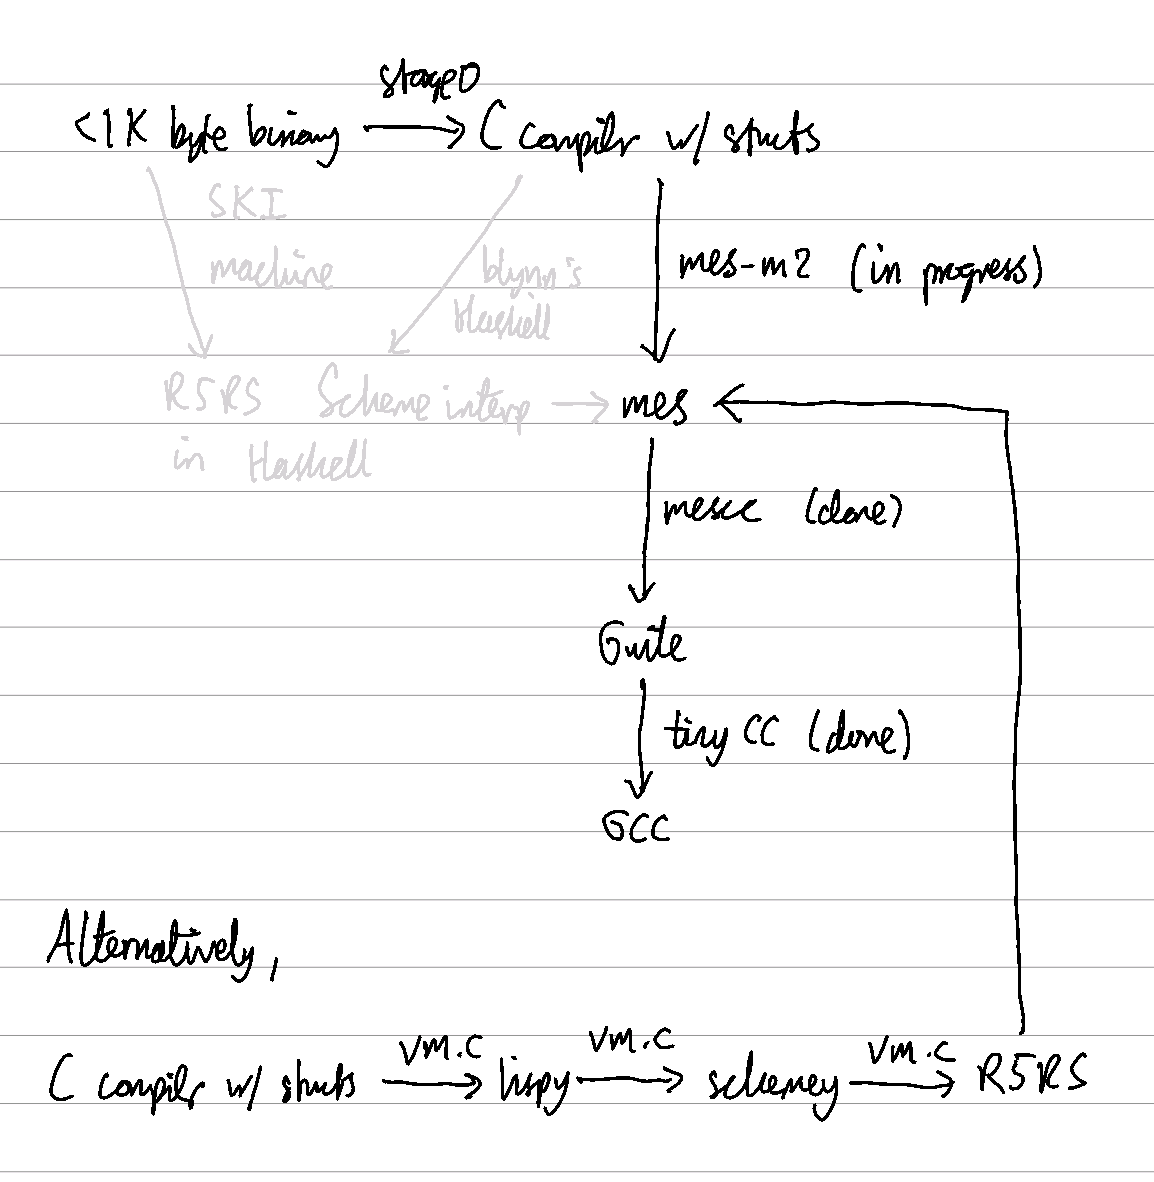 stage0
<1K byte binary → C compiler w/ structs
SKI
machine
blynn's
Haskell
mes-m2 (in progress)
R5RS Scheme interp → mes
in Haskell
mescc (done)
Guile
tiny CC (done)
GCC
Alternatively,
vm.c vm.c vm.c
C compiler w/ structs → lispy → schemey → R5RS